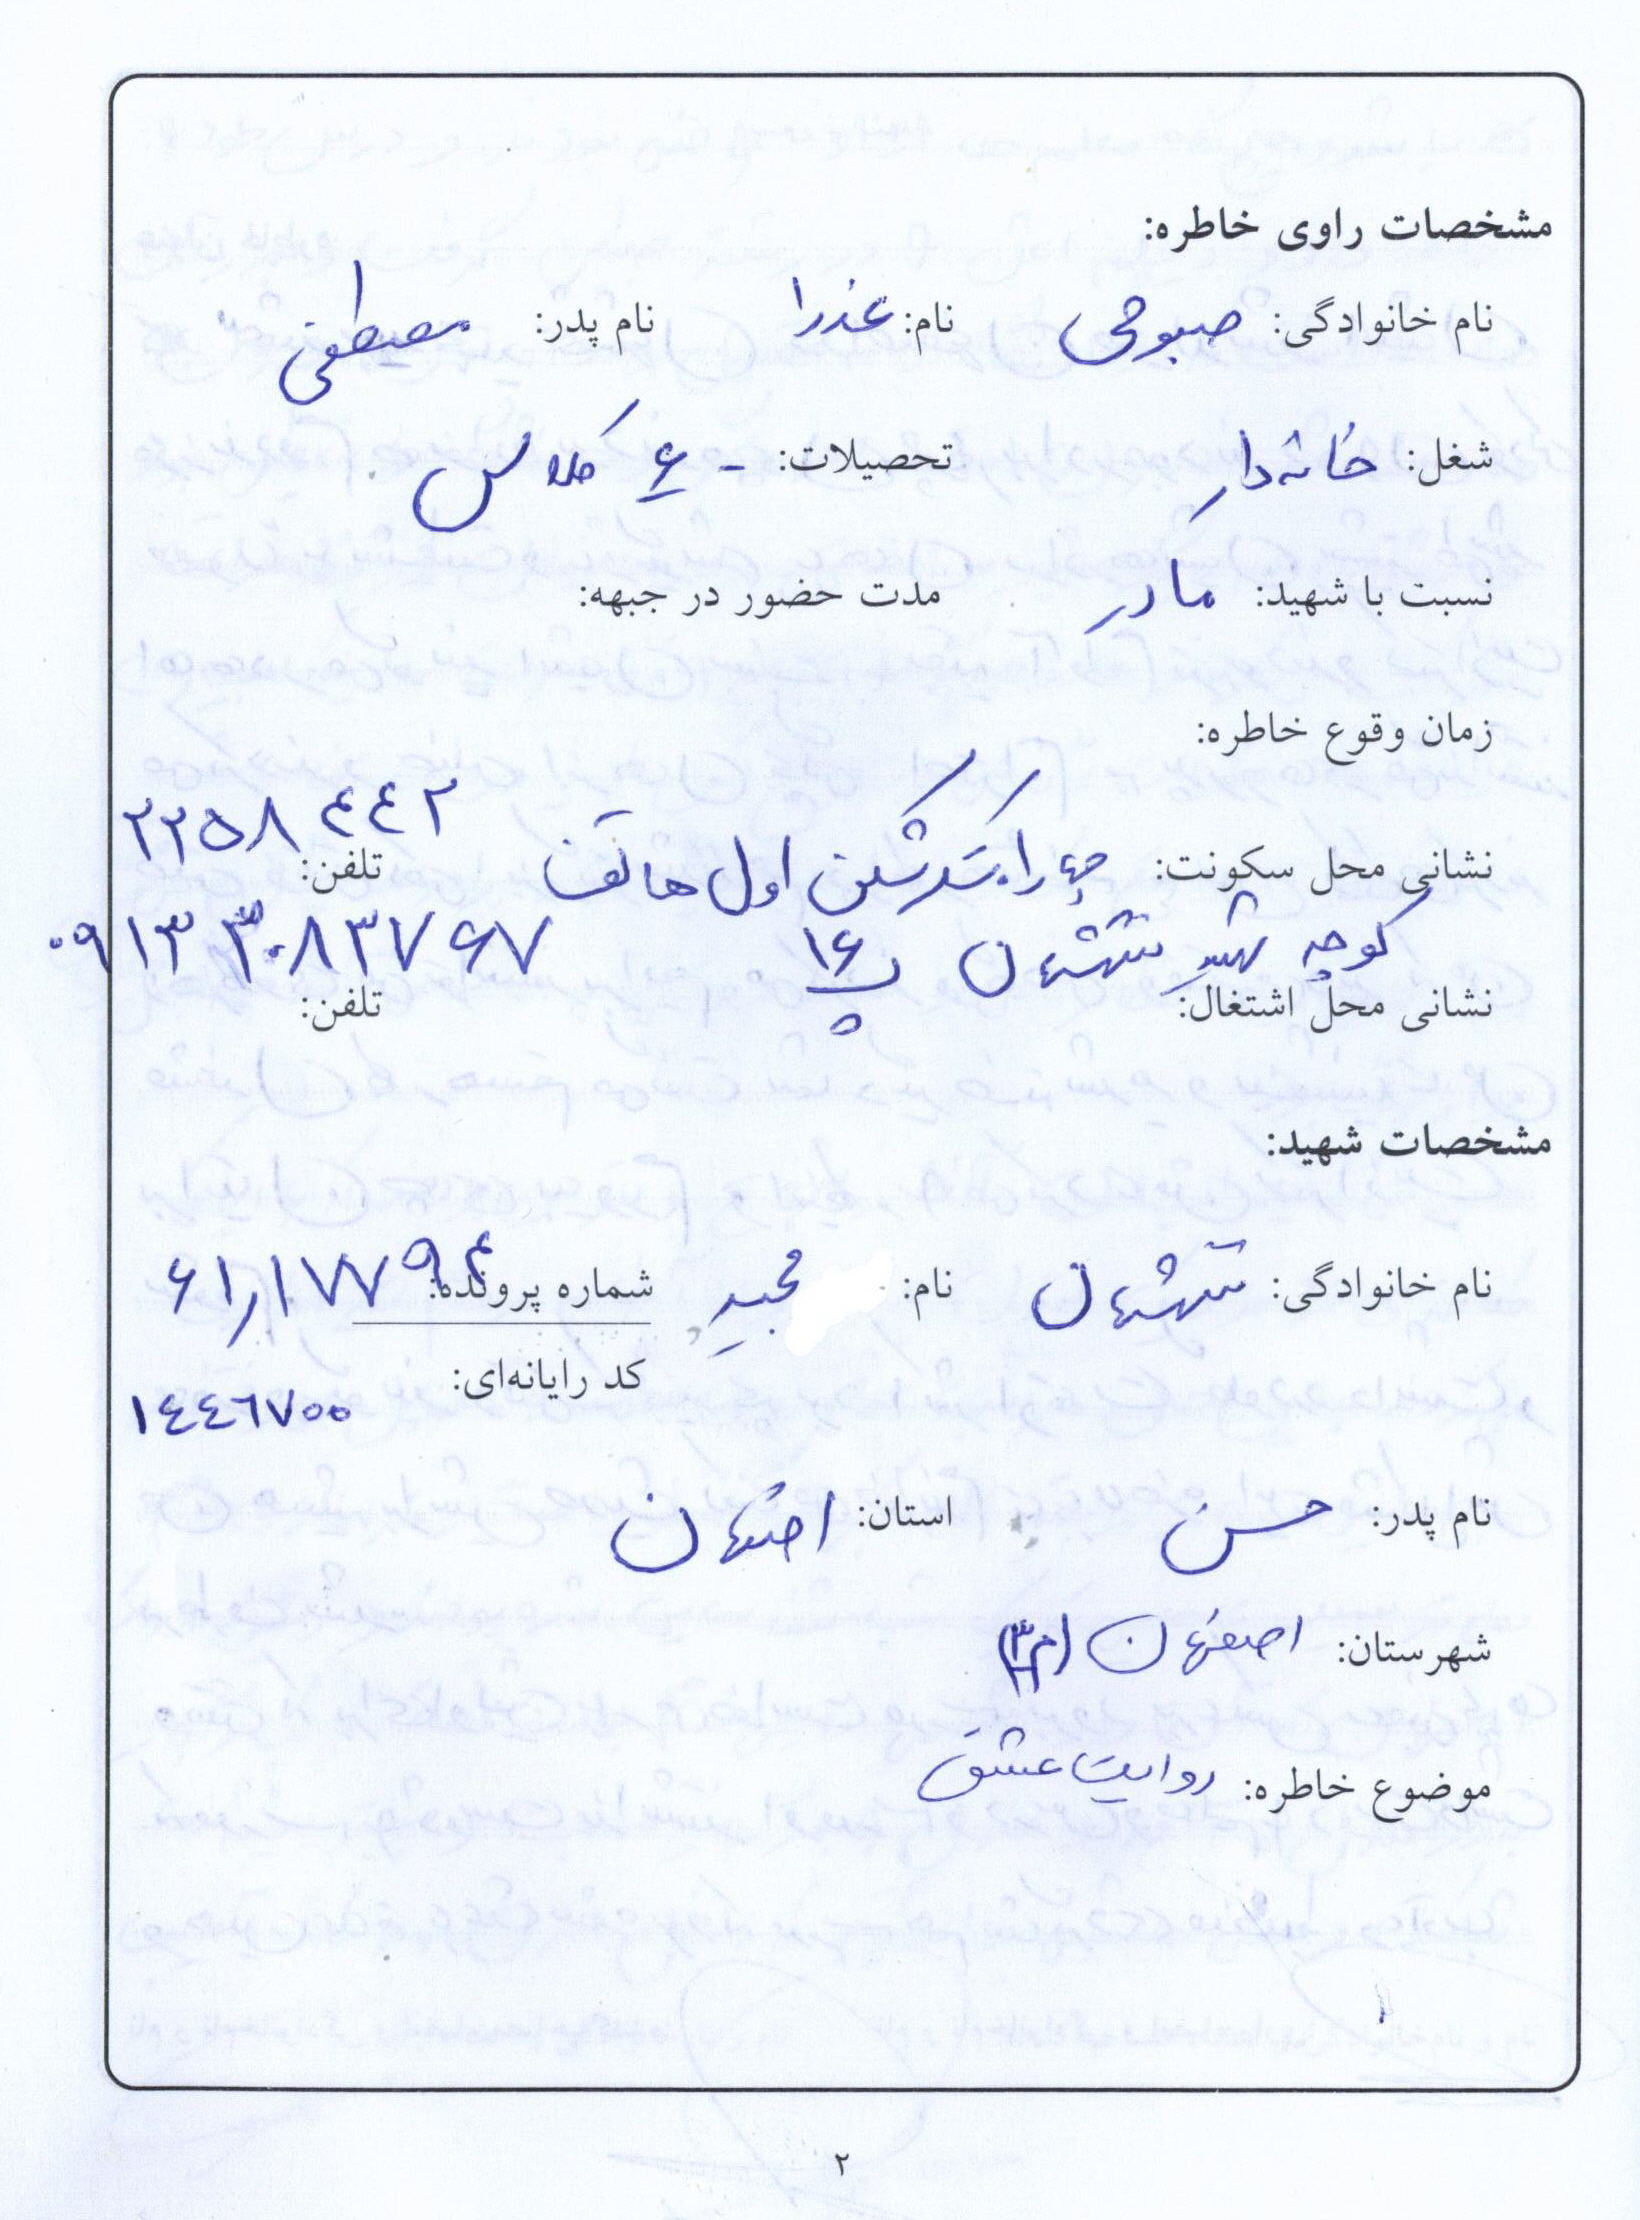 مشخصات راوی خاطره:
نام خانوادگی: صبوحی نام: عذرا نام پدر: مصطفی
شغل: خانه دار تحصیلات: - ۶ کلاس
نسبت با شهید: مادر مدت حضور در جبهه:
زمان وقوع خاطره:
نشانی محل سکونت: چهارراه اول هاتف تلفن: ۲۲۵۸۴۴۲
کوچه شهید پ ۱۶ ۰۹۱۳۳۰۸۳۷۶۷
نشانی محل اشتغال: تلفن:
مشخصات شهید:
نام خانوادگی: نام: مجید شماره پرونده: ۶۱/۱۷۷۹۴
کد رایانه‌ای: ۱۴۴۶۷۰۰
نام پدر: حسن استان: اصفهان
شهرستان: اصفهان (م۳)
موضوع خاطره: روایت عشق
۲